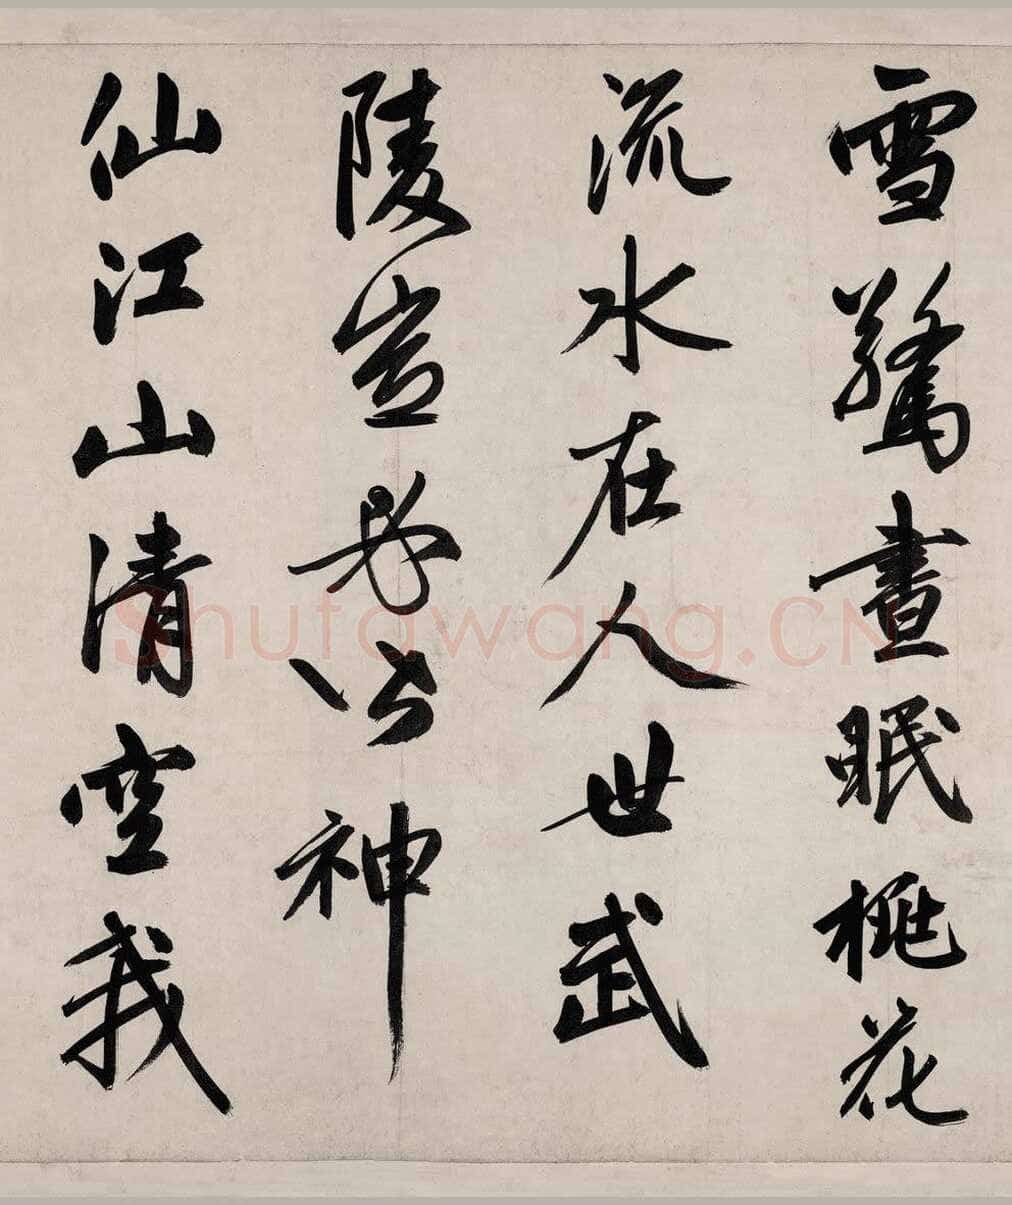 雪驚晝眠桃花
流水在人世武
陵豈必皆神
仙江山清空我
Shufawang.CN